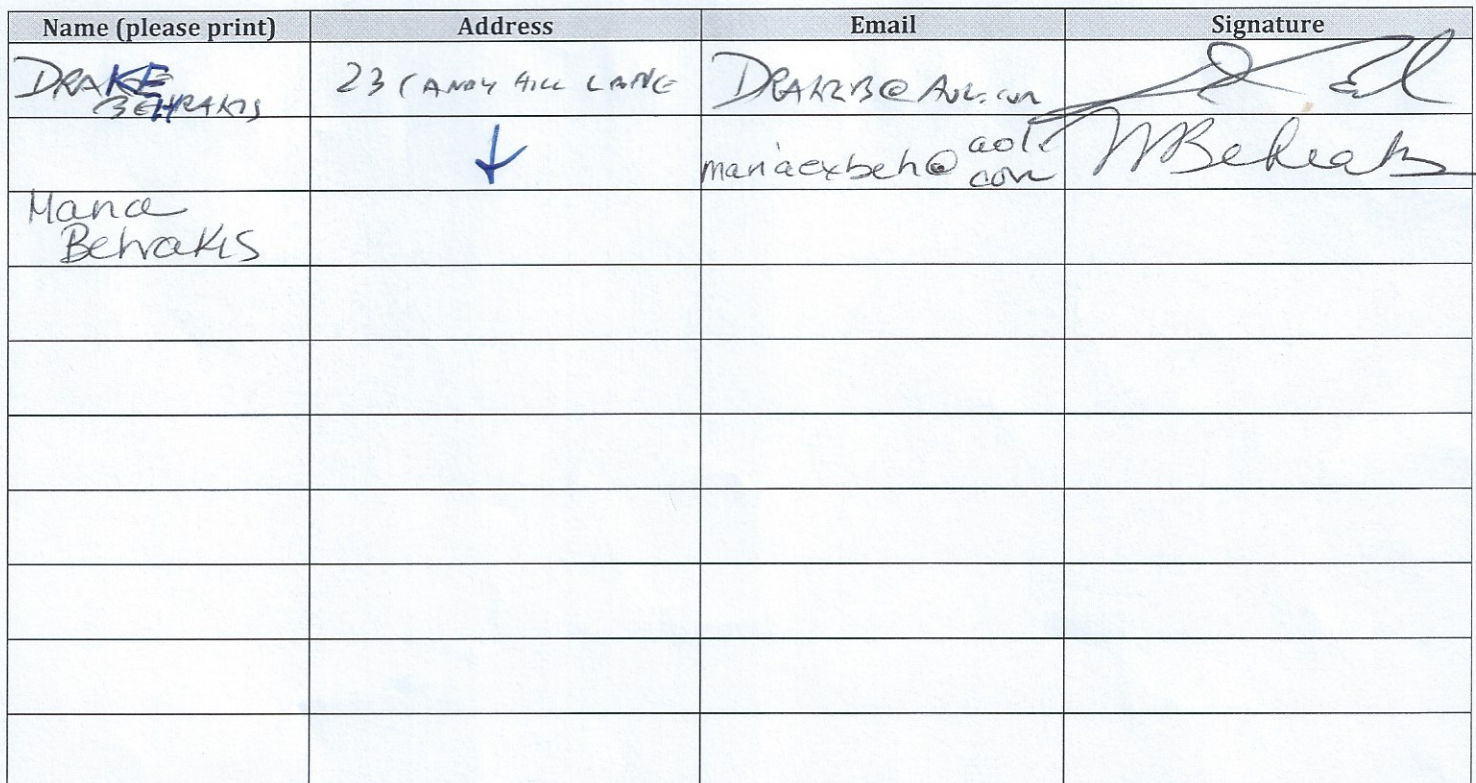 Name (please print) Address Email Signature
DRAKE 23 CANDY HILL LANE DRAKEB@AOL.com
BEHRAKIS
mariaexbeh@aol.com MBehrakis
Maria
Behrakis